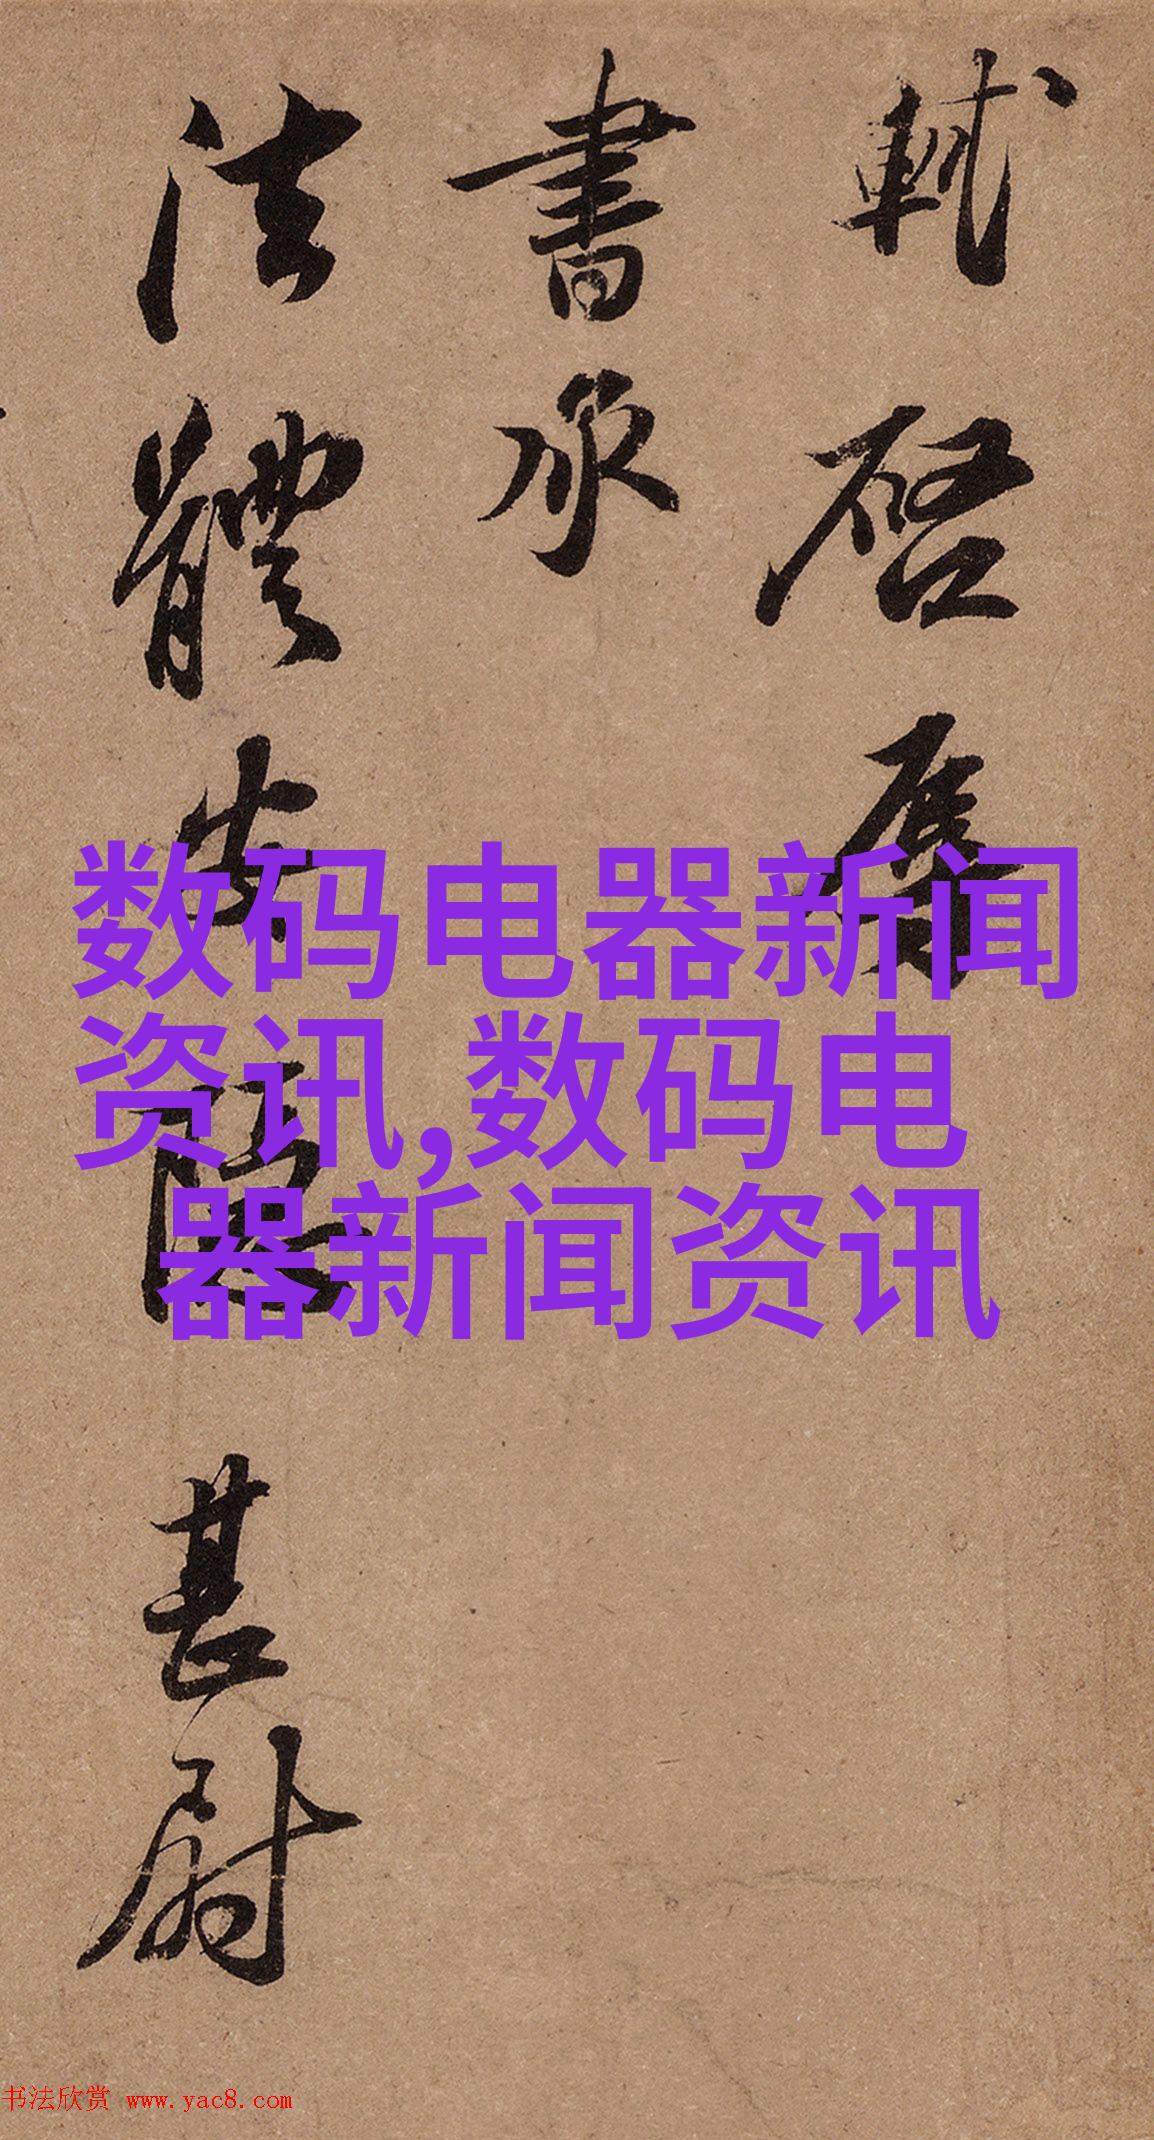 軾啓辱
書承
法體安隱甚尉
数码电器新闻
资讯,数码电
器新闻资讯
书法欣赏 www.yac8.com